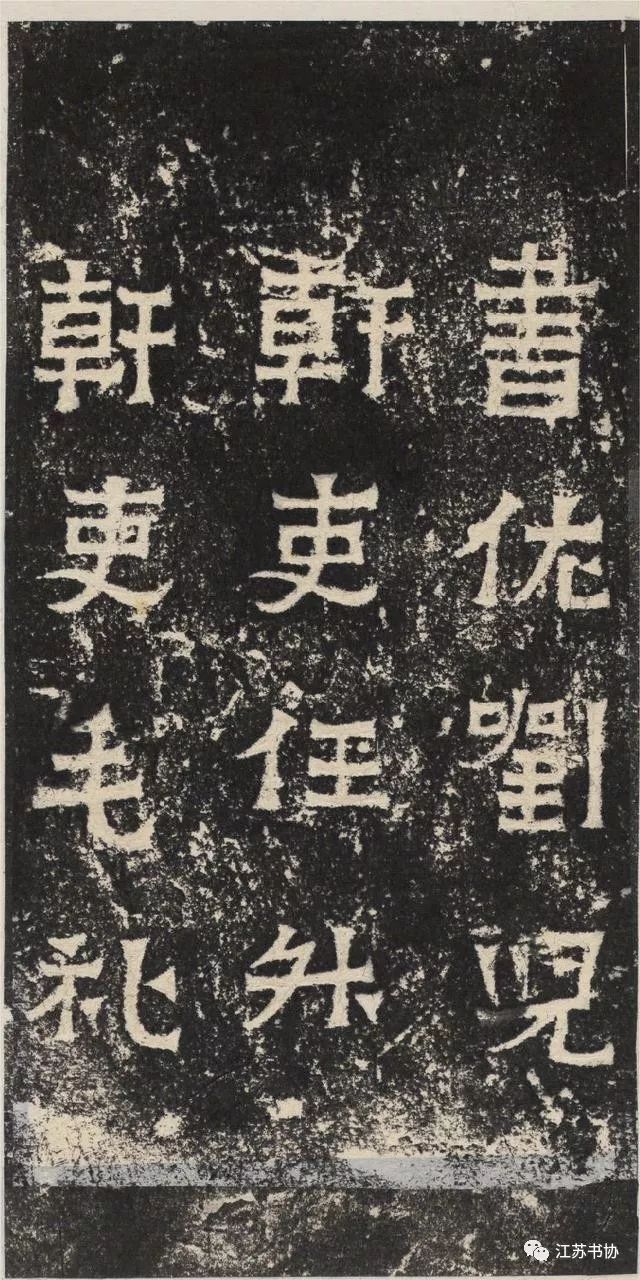 書佐劉兒
幹吏任升
幹吏毛礼
江苏书协